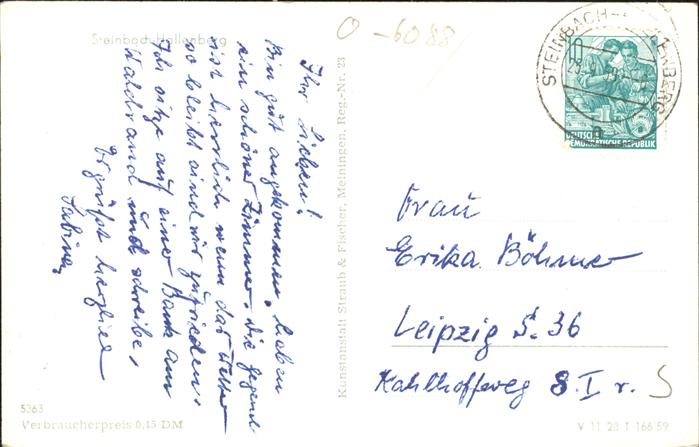 Steinbach-Hallenberg
O -6088
Ihr Lieben!
Bin gut angekommen, haben
ein schönes Zimmer, die Gegend
ist herrlich wenn das Wetter
so bleibt sind wir zufrieden.
Ich sitze auf einer Bank am
Waldrand und schreibe.
Es grüßt herzlich
Sabine
Kunstanstalt Straub & Fischer, Meiningen, Reg.-Nr. 23
STEINBACH-HALLENBERG
10
DEUTSCHE
DEMOKRATISCHE REPUBLIK
Frau
Erika Böhme
Leipzig S. 36
8. I r. S
5363
Verbraucherpreis 0,15 DM
V 11 28 T 166 59